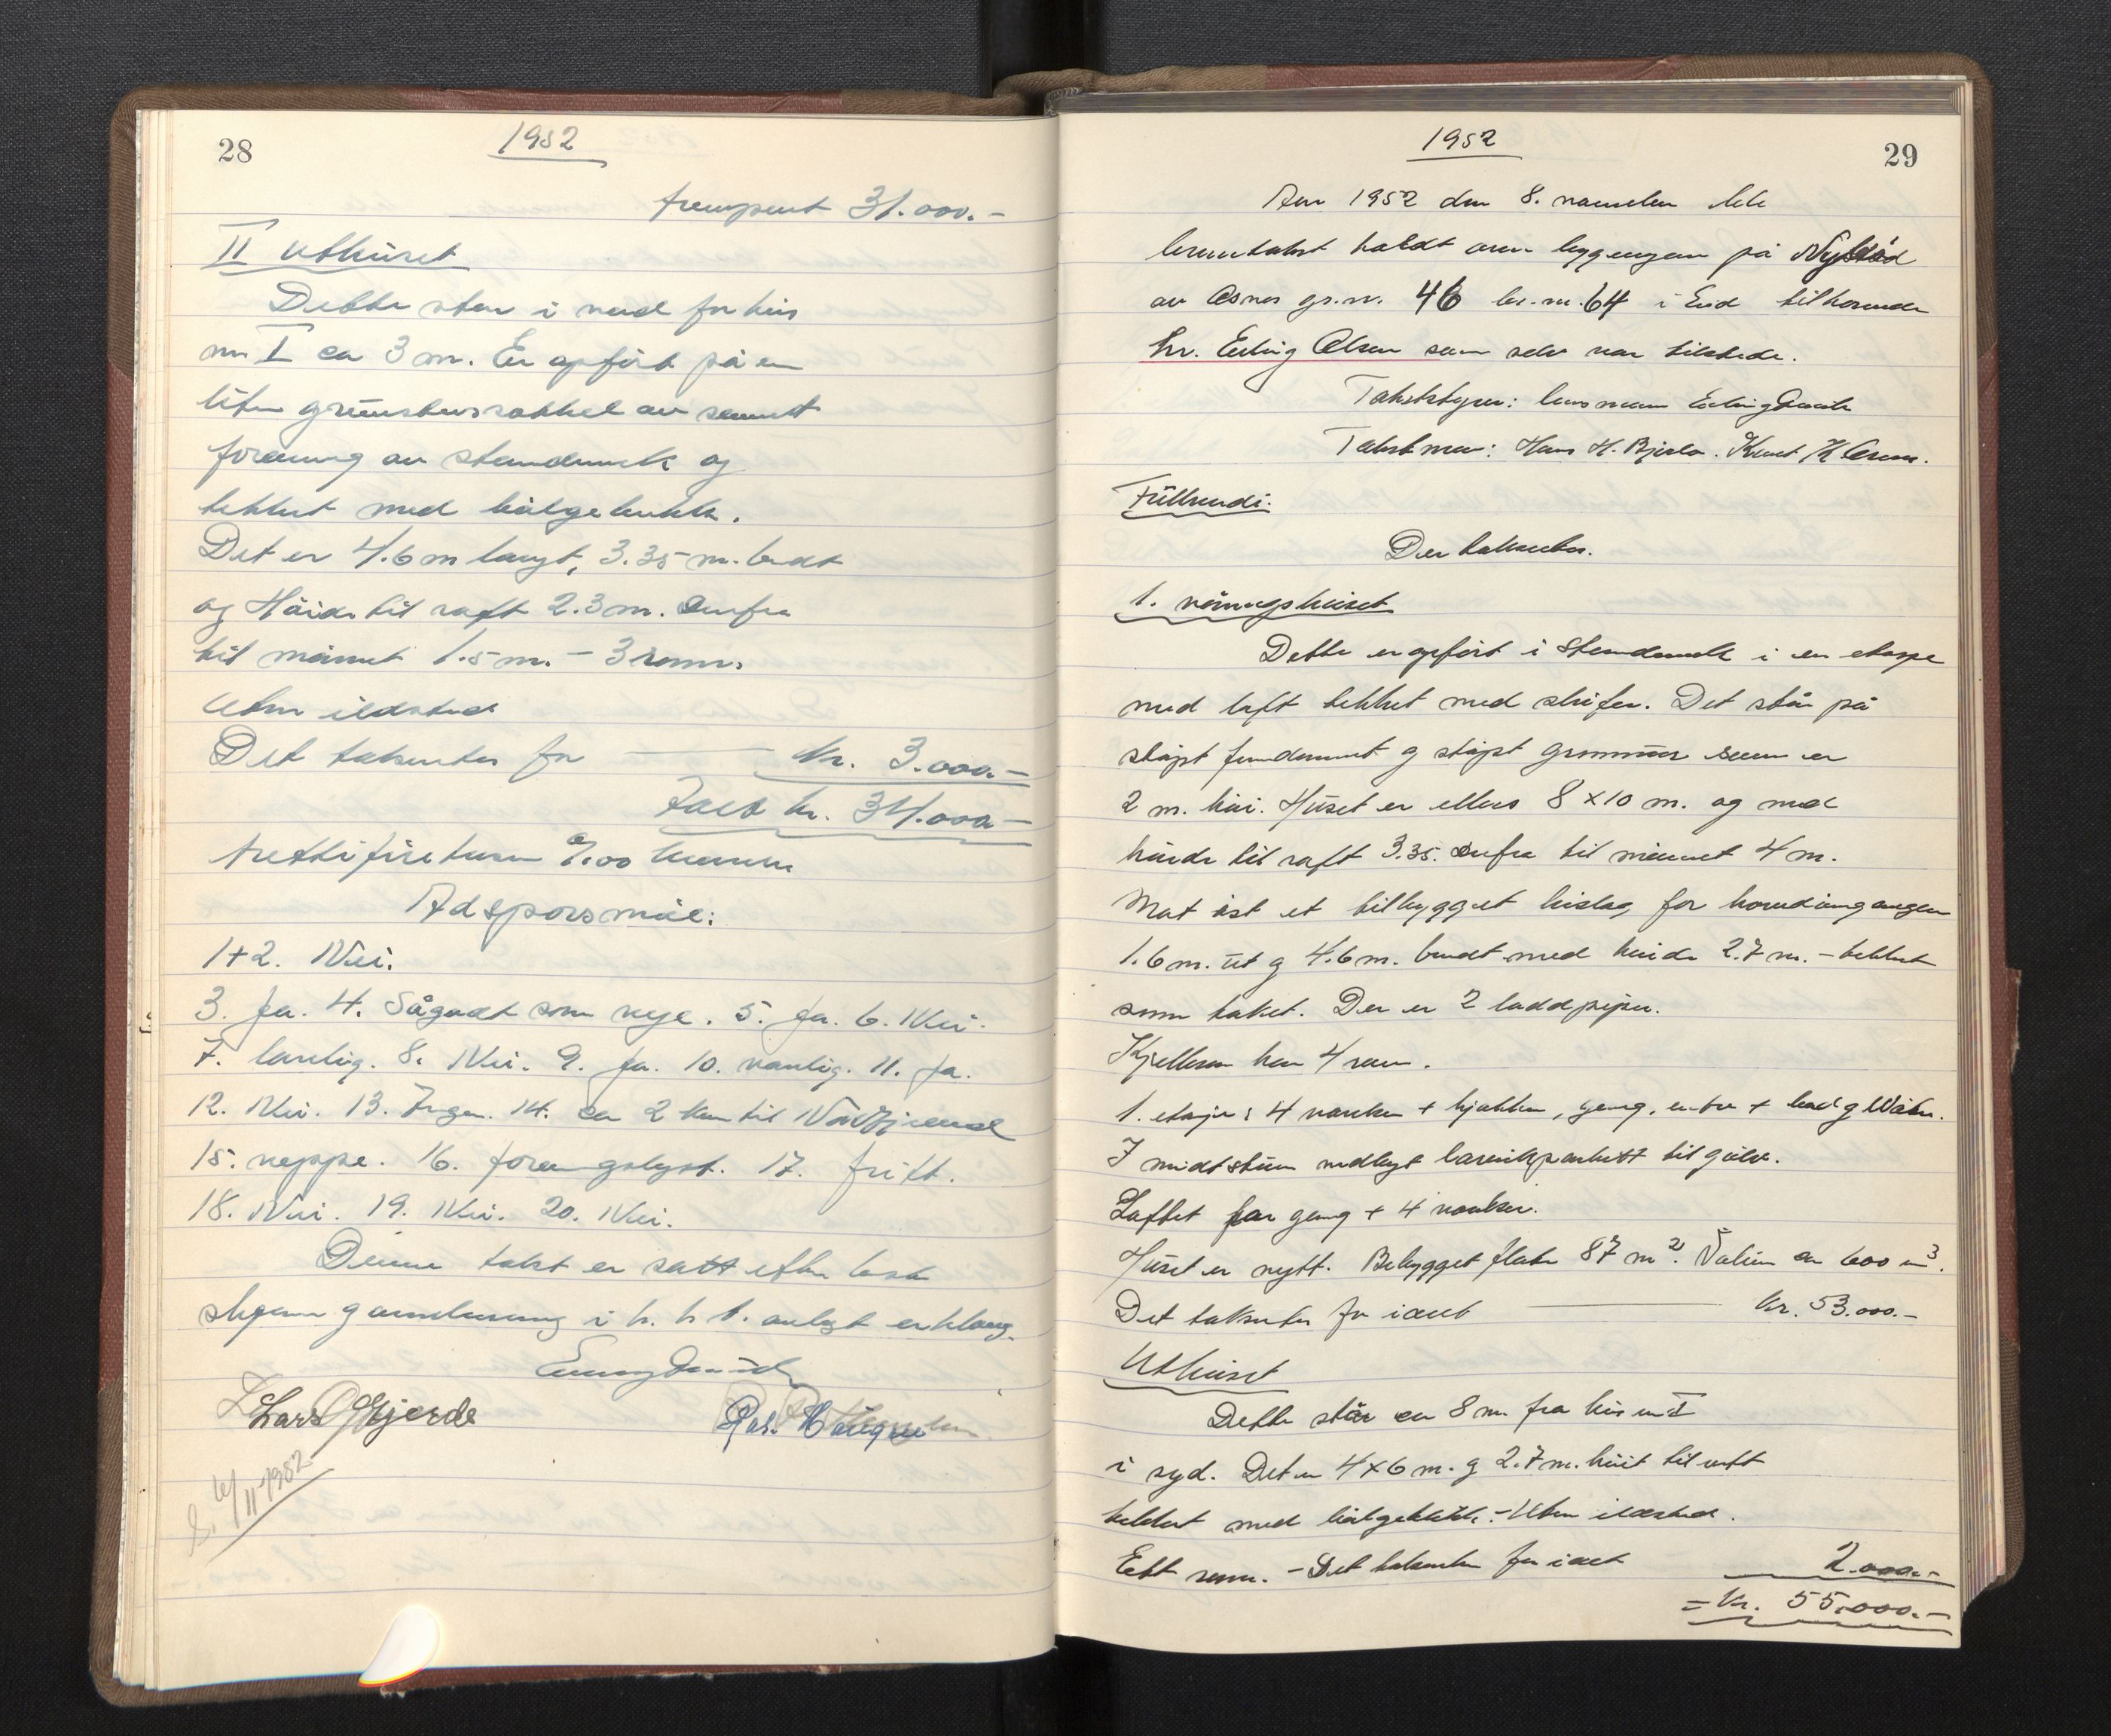 28
1952
fremgent 31.000.-
II Uthuset
Dette står i nord for hus
nr. I ca 3 m. Er opført på en
liten grunnmurssokkel av sement
av stenderverk og
tekket med bølgeblikk.
Det er 4.6 m langt, 3.35 m. bredt
og Höide til raft 2.3 m. Derfra
til mönnet 1.5 m. - 3 romm.
Uten ildsted
Det takseres for kr. 3.000.-
kr. 34.000.-
trettifiretusen 0/00 kroner
Adspørsmål:
1+2. Nei.
3. Ja. 4. Sågodt som nye. 5. Ja. 6. Nei.
7. 8. Nei. 9. Ja. 10. vanlig. 11. Ja.
12. Nei. 13. Ingen. 14. ca 2 km til
15. neppe. 16. 17. fritt.
18. Nei. 19. Nei. 20. Nei.
Denne takst er satt efter beste
skjønn og overbevisning i h. h. t. avlagt erklæring.
Lars O Gjerde
6/11 1952
29
1952
Aar 1952 den 8. november ble
branntakst holdt over byggingen på Nybråd
av Osnes gr.nr. 46 br.nr. 64 i Eid tilhørende
hr. Erling Olsen som selv var tilstede.
Takststyrer: lensmann
Takstmenn: Hans H. Bjørlo. Knut
Fullvendi:
Der takseres.
1. våningshuset
Dette er opført i stenderverk i en etasje
med loft tekket med skifer. Det står på
støpt fundament og støpt grunnmur som er
2 m. høi. Huset er ellers 8 x 10 m. og med
høide til raft 3.35. Derfra til mönnet 4 m.
Mot øst et tilbygget bislag for hovedinngangen
1.6 m. ut og 4.6 m. bredt med høide 2.7 m. - tekket
som taket. Der er 2 pipen.
Kjelleren har 4 rom.
1. etasje: 4 værelser + kjøkken, gang, entre + bad og
I midtstuen nedlagt til gulv.
Loftet har gang + 4 værelser.
Huset er nytt. Bebygget flate 87 m2. Volum ca 600 m3.
Det takseres for i alt kr. 53.000.-
Uthuset
Dette står ca 8 m fra hus nr. I
i syd. Det er 4 x 6 m. og 2.7 m. høit til raft
tekket med bølgeblikk. - Uten ildsted.
Eett romm. - Det takseres for i alt 2.000.-
= Kr. 55.000.-